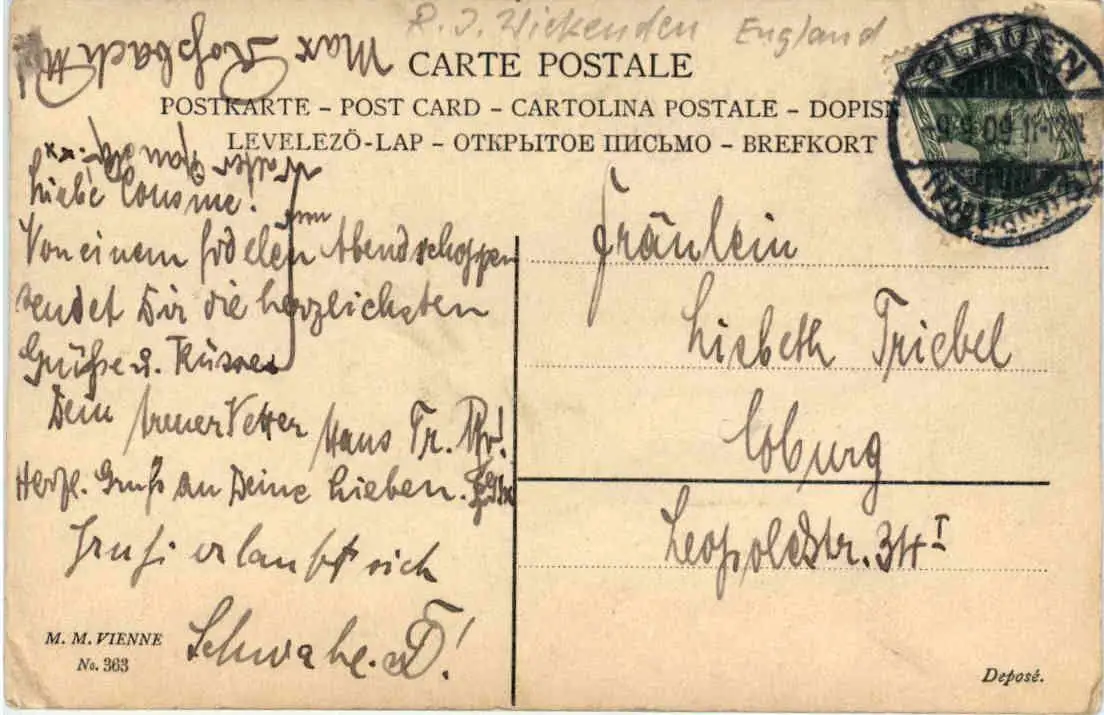 R. J. Wickenden England
Max Roßbach
CARTE POSTALE
POSTKARTE – POST CARD – CARTOLINA POSTALE – DOPISN
LEVELEZŐ-LAP – ОТКРЫТОЕ ПИСЬМО – BREFKORT
PLAUEN
9.9.09 11-12
(VOGTL.)
Liebe Cousine!
Von einem fidelen Abendschoppen
sendet Dir die herzlichsten
Grüße u. Küsse
Dein treuer Vetter Hans Tr.
Herzl. Gruß an Deine Lieben.
erlaubt sich
Schwabe
Fräulein
Lisbeth Triebel
Coburg
Leopoldstr. 34 I
M. M. VIENNE
No. 363
Deposé.